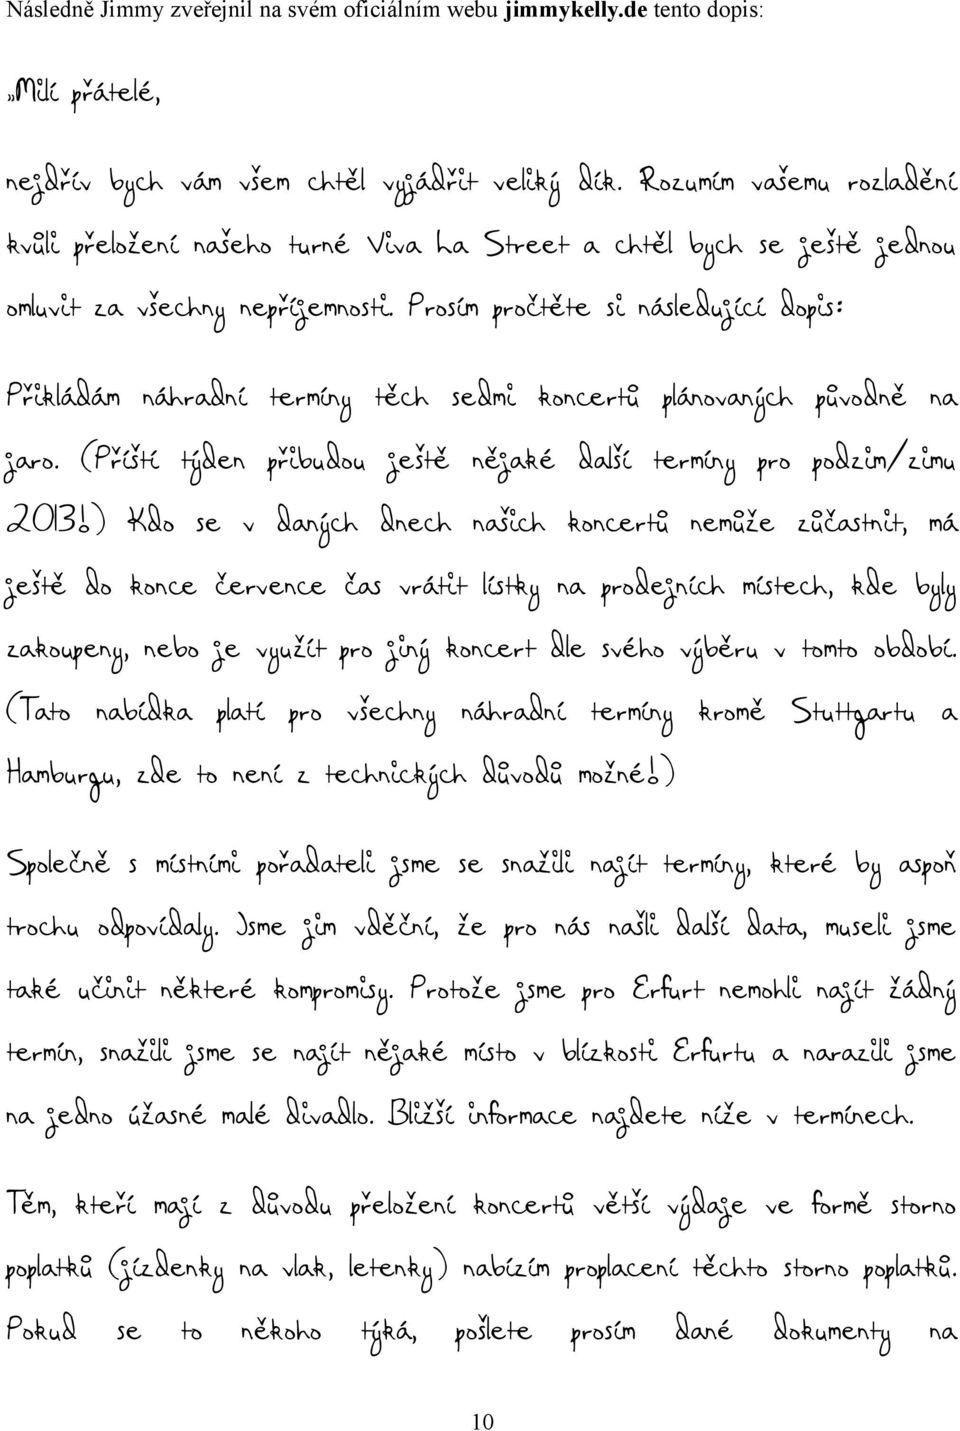 Následně Jimmy zveřejnil na svém oficiálním webu jimmykelly.de tento dopis:
„Milí přátelé,
nejdřív bych vám všem chtěl vyjádřit veliký dík. Rozumím vašemu rozladění
kvůli přeložení našeho turné Viva ha Street a chtěl bych se ještě jednou
omluvit za všechny nepříjemnosti. Prosím pročtěte si následující dopis:
Přikládám náhradní termíny těch sedmi koncertů plánovaných původně na
jaro. (Příští týden přibudou ještě nějaké další termíny pro podzim/zimu
2013!) Kdo se v daných dnech našich koncertů nemůže zůčastnit, má
ještě do konce července čas vrátit lístky na prodejních místech, kde byly
zakoupeny, nebo je využít pro jiný koncert dle svého výběru v tomto období.
(Tato nabídka platí pro všechny náhradní termíny kromě Stuttgartu a
Hamburgu, zde to není z technických důvodů možné!)
Společně s místními pořadateli jsme se snažili najít termíny, které by aspoň
trochu odpovídaly. Jsme jim vděční, že pro nás našli další data, museli jsme
také učinit některé kompromisy. Protože jsme pro Erfurt nemohli najít žádný
termín, snažili jsme se najít nějaké místo v blízkosti Erfurtu a narazili jsme
na jedno úžasné malé divadlo. Bližší informace najdete níže v termínech.
Těm, kteří mají z důvodu přeložení koncertů větší výdaje ve formě storno
poplatků (jízdenky na vlak, letenky) nabízím proplacení těchto storno poplatků.
Pokud se to někoho týká, pošlete prosím dané dokumenty na
10